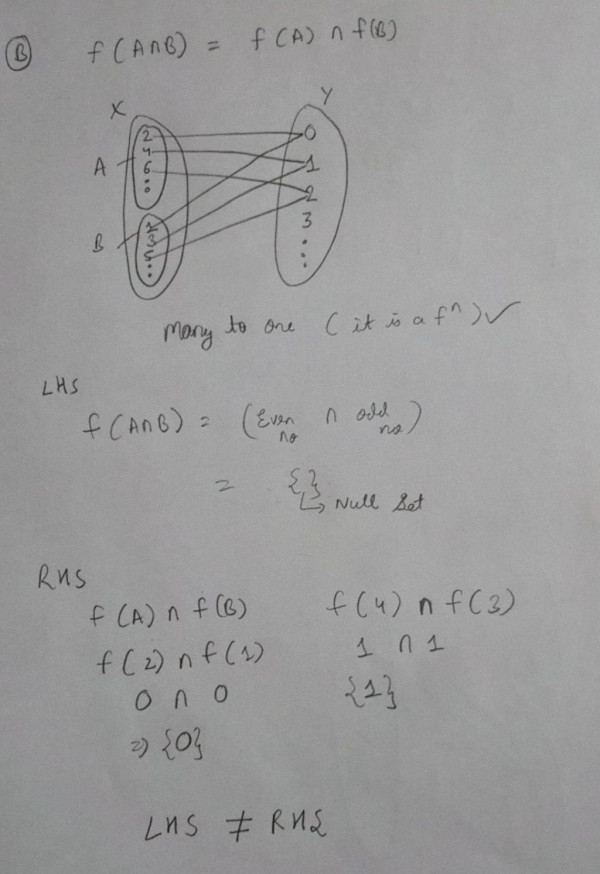 B f(A∩B) = f(A) ∩ f(B)
X Y
A 2 4 6
B 1 3 5
0 1 2 3
Many to one (it is a fⁿ) ✓
LHS
f(A∩B) = (Even no ∩ odd no)
= {}
↳ Null Set
RHS
f(A) ∩ f(B) f(4) ∩ f(3)
f(2) ∩ f(1) 1 ∩ 1
0 ∩ 0 {1}
⇒ {0}
LHS ≠ RHS